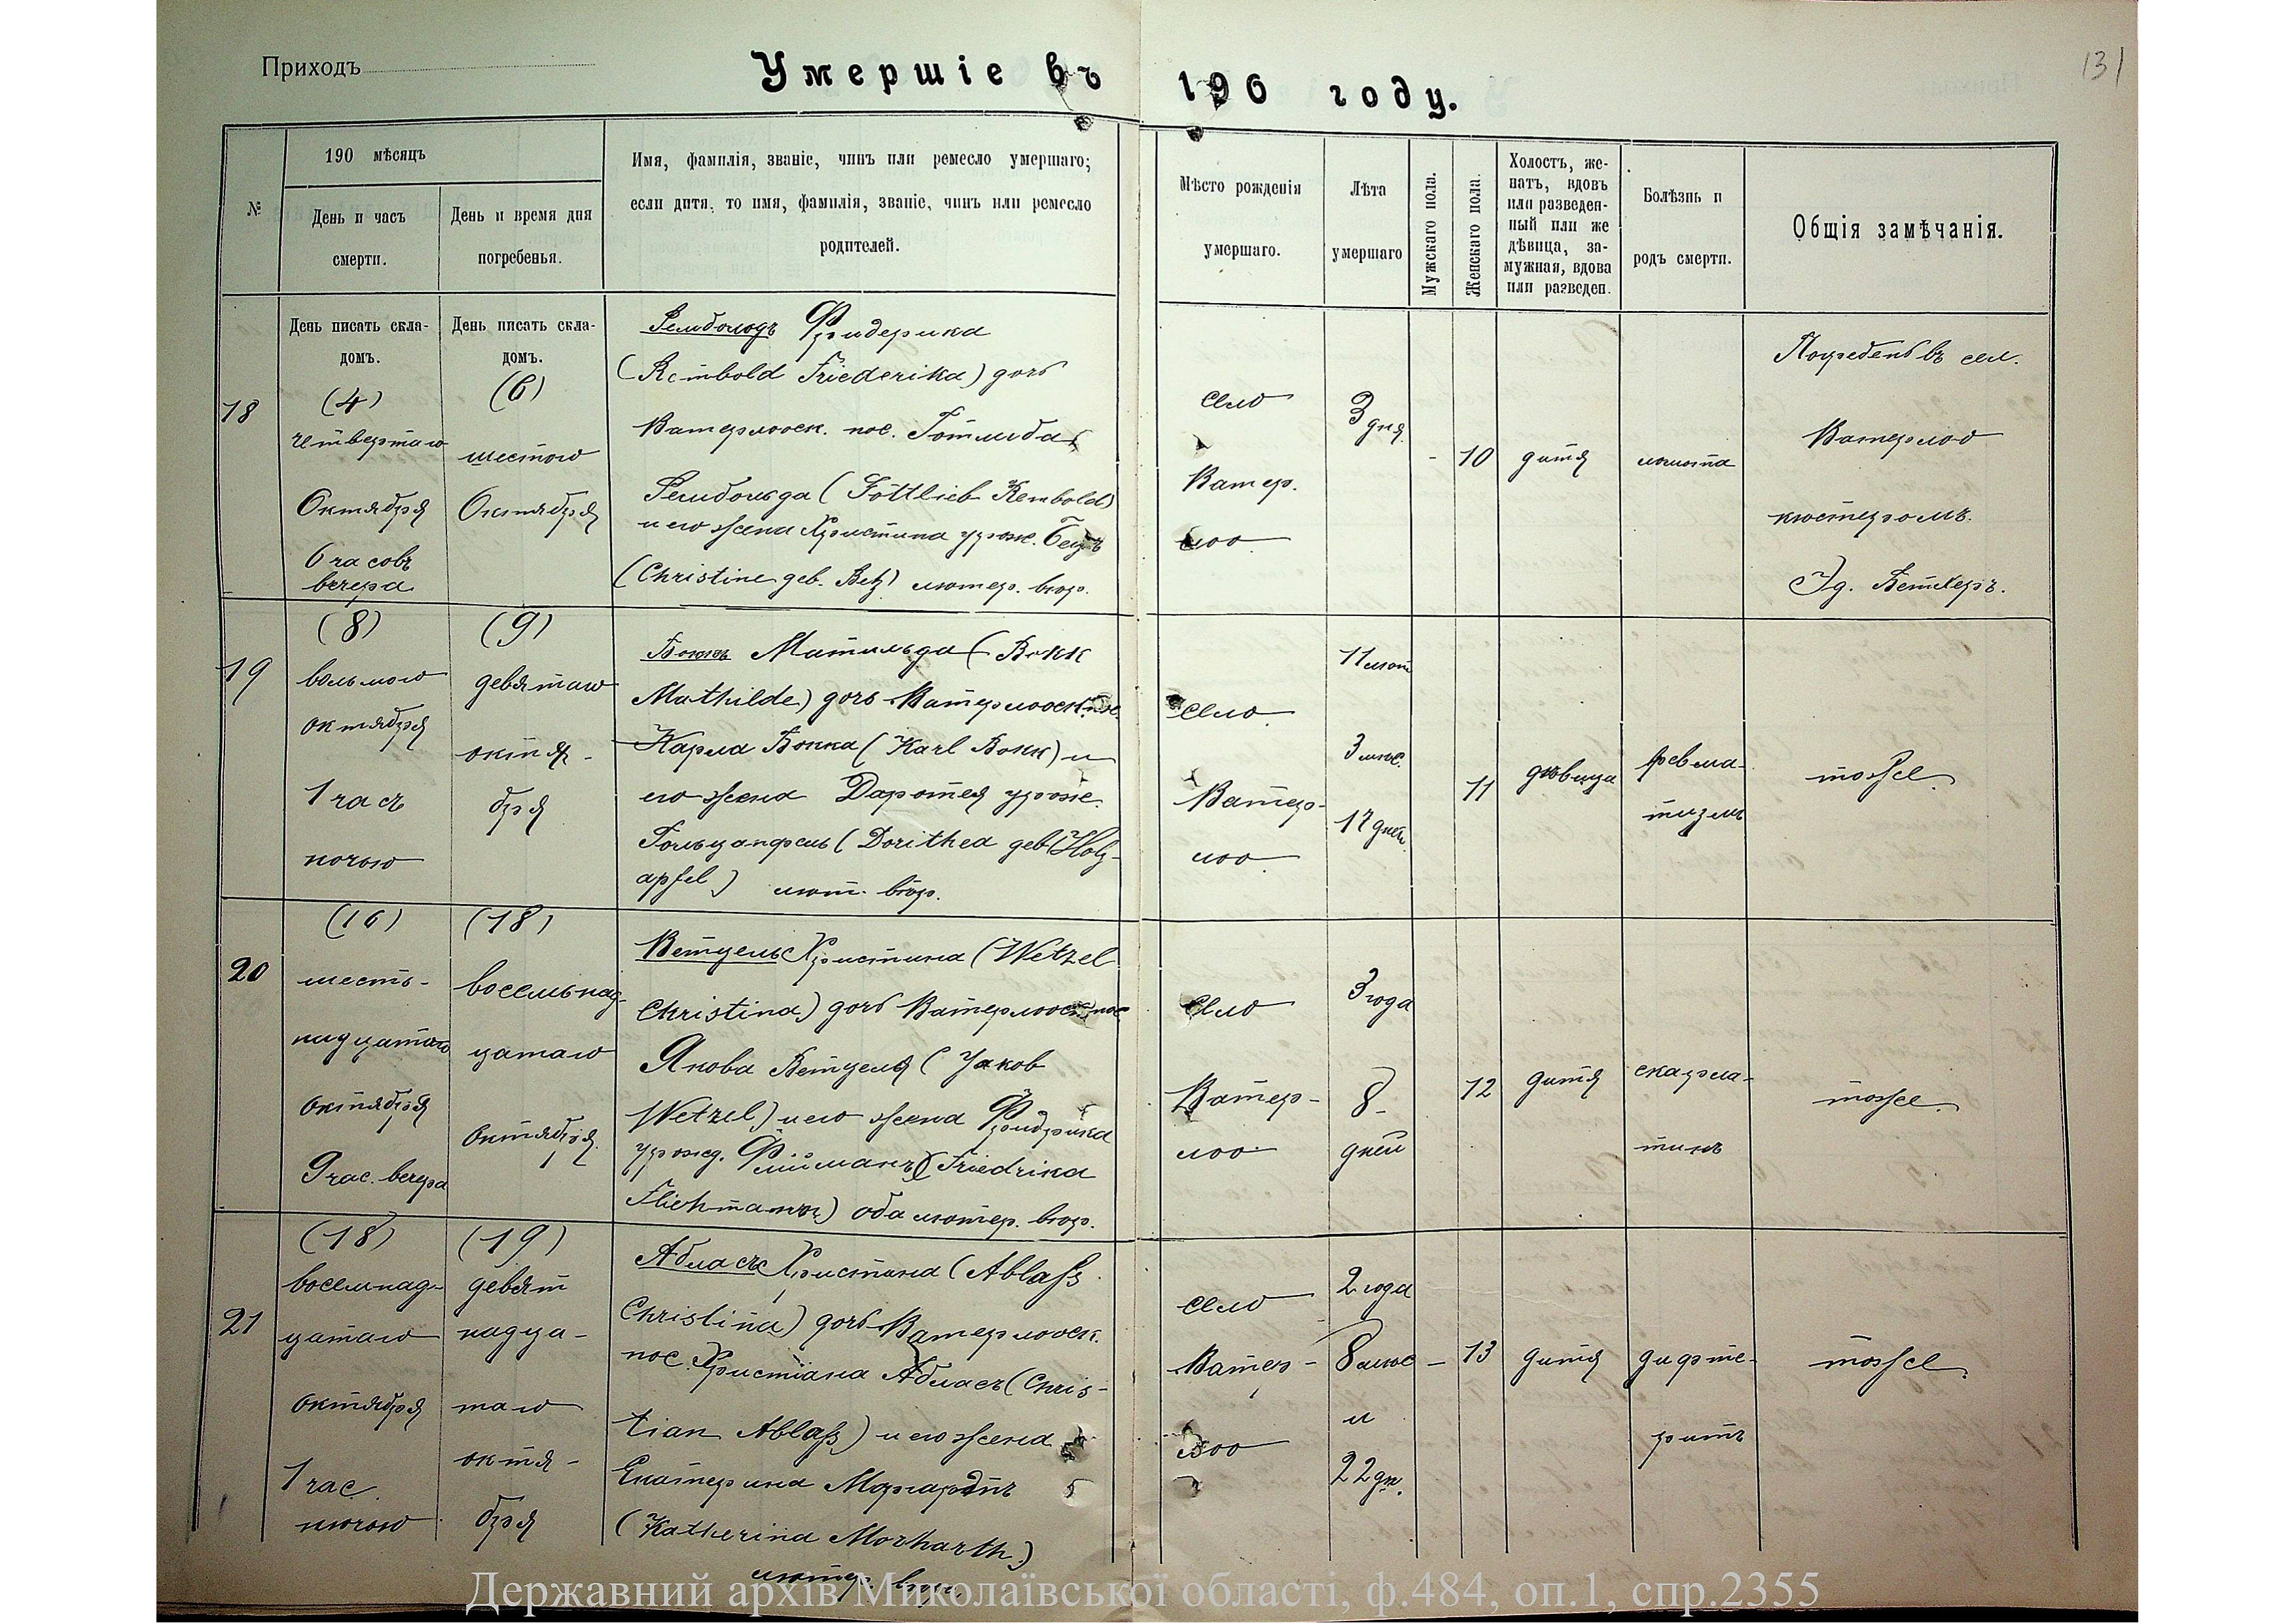 Приходъ
Умершіе въ 190 году.
131
№
190 мѣсяцъ
День и часъ
смерти.
День и время дня
погребенья.
Имя, фамилія, званіе, чинъ или ремесло умершаго;
если дитя, то имя, фамилія, званіе, чинъ или ремесло
родителей.
Мѣсто рожденія
умершаго.
Лѣта
умершаго
Мужскаго пола.
Женскаго пола.
Холостъ, же-
натъ, вдовъ
или разведен-
ный или же
дѣвица, за-
мужная, вдова
или разведен.
Болѣзнь и
родъ смерти.
Общія замѣчанія.
День писать скла-
домъ.
День писать скла-
домъ.
18
(4)
четвертаго
Октября
6 часовъ
вечера
(6)
шестого
Октября
Рембольдъ Фридерика
(Rembold Friederika) дочь
Ватерлооск. пос. Готлиба
Рембольда (Gottlieb Rembold)
и его жена Христина урож. Бецъ
(Christine geb. Betz) лютер. вѣр.
село
Ватер.
лоо
3 дня
10
дитя
Погребенъ въ сел.
Ватерлоо
кюстеромъ.
19
(8)
восьмого
октября
1 часъ
ночью
(9)
девятаго
октя-
бря
Боккъ Матильда (Bokk
Mathilde) дочь Ватерлооск. пос.
Карла Бокка (Karl Bokk) и
его жена Даротея урож.
Гольцапфель (Dorithea geb Holz-
apfel) лют. вѣр.
село
Ватер-
лоо
11 лѣт
3 мѣс.
17 дней
11
дѣвица
ревма-
тизмъ
тоже
20
(16)
шест-
надцатаго
октября
9 час. вечера
(18)
восемьнад-
цатаго
октября
Ветцель Христина (Wetzel
Christina) дочь Ватерлооск. пос
Якова Ветцеля (Jakob
Wetzel) и его жена Фридрика
урожд. (Friedrika
оба лютер. вѣр.
село
Ватер-
лоо
3 года
8
дней
12
дитя
скарла-
тинъ
тоже.
21
(18)
восемнад-
цатаго
октября
1 час.
ночью
(19)
девят
надца-
таго
октя-
бря
Абласъ Христина (Ablaß
Christina) дочь Ватерлооск.
пос. Христіана Абласъ (Chris-
tian Ablaß) и его жена
Екатерина Моргартъ
(Katherina Morharth)
лютер. вѣр.
село
Ватер-
лоо
2 года
8 мѣс
и
22 дн.
13
дитя
дифте-
ритъ
тоже
Державний архів Миколаївської області, ф.484, оп.1, спр.2355